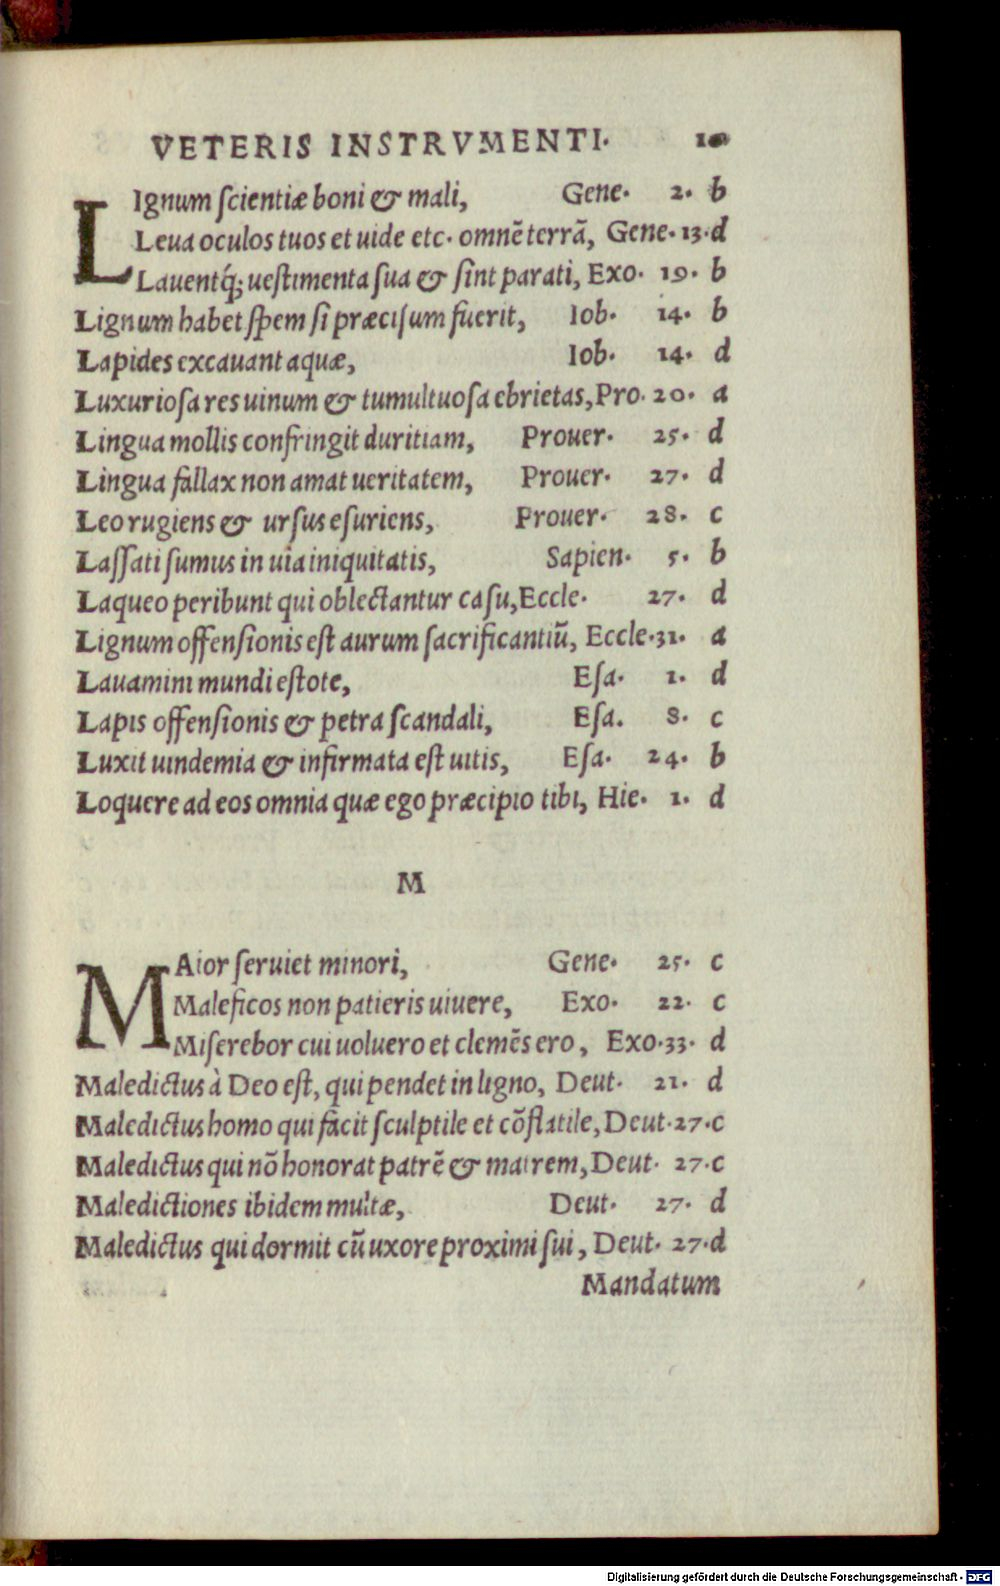 VETERIS INSTRVMENTI. 10
LIgnum scientiæ boni & mali, Gene. 2. b
Leua oculos tuos et uide etc. omnē terrā, Gene. 13. d
Lauentq́; uestimenta sua & sint parati, Exo. 19. b
Lignum habet spem si præcisum fuerit, Iob. 14. b
Lapides excauant aquæ, Iob. 14. d
Luxuriosa res uinum & tumultuosa ebrietas, Pro. 20. a
Lingua mollis confringit duritiam, Prouer. 25. d
Lingua fallax non amat ueritatem, Prouer. 27. d
Leo rugiens & ursus esuriens, Prouer. 28. c
Lassati sumus in uia iniquitatis, Sapien. 5. b
Laqueo peribunt qui oblectantur casu, Eccle. 27. d
Lignum offensionis est aurum sacrificantiū, Eccle. 31. a
Lauamini mundi estote, Esa. 1. d
Lapis offensionis & petra scandali, Esa. 8. c
Luxit uindemia & infirmata est uitis, Esa. 24. b
Loquere ad eos omnia quæ ego præcipio tibi, Hie. 1. d
M
MAior seruiet minori, Gene. 25. c
Maleficos non patieris uiuere, Exo. 22. c
Miserebor cui uoluero et clemēs ero, Exo. 33. d
Maledictus à Deo est, qui pendet in ligno, Deut. 21. d
Maledictus homo qui facit sculptile et cōflatile, Deut. 27. c
Maledictus qui nō honorat patrē & matrem, Deut. 27. c
Maledictiones ibidem multæ, Deut. 27. d
Maledictus qui dormit cū uxore proximi sui, Deut. 27. d
Mandatum
Digitalisierung gefördert durch die Deutsche Forschungsgemeinschaft - DFG